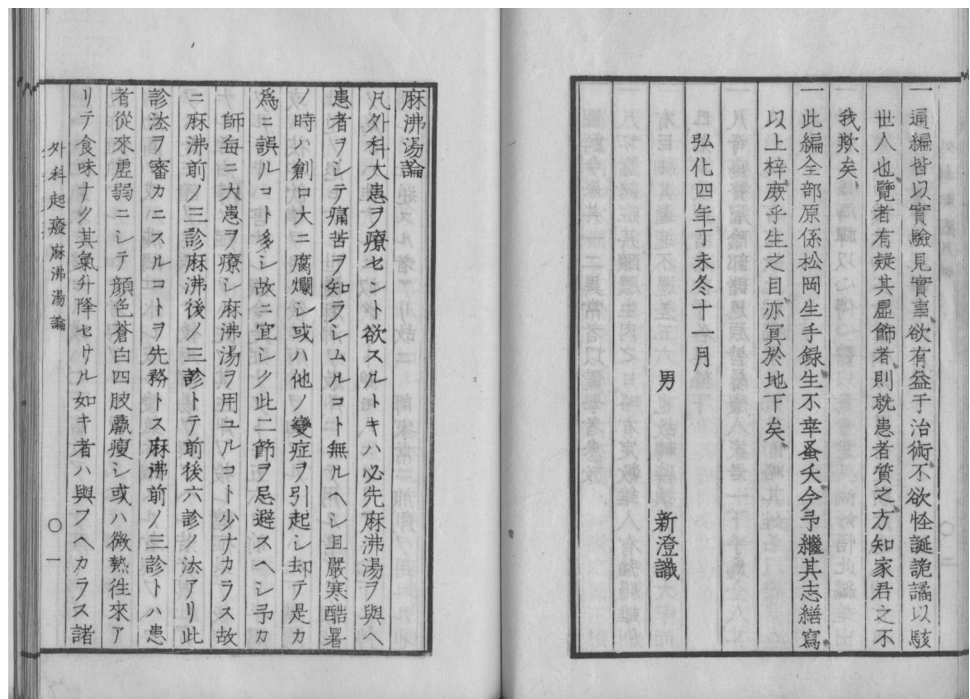 一通編皆以實驗見實事欲有益于治術不欲怪誕詭譎以駭
世人也覽者有疑其虛飾者則就患者質之方知家君之不
我欺矣
一此編全部原係松岡生手錄生不幸蚤夭今予繼其志繕寫
以上梓庶乎生之目亦冥於地下矣
弘化四年丁未冬十一月
男　　新澄識
麻沸湯論
凡外科大患ヲ療セント欲スルトキハ必先麻沸湯ヲ與ヘ
患者ヲシテ痛苦ヲ知ラシムルコト無ルヘシ且嚴寒酷暑
ノ時ハ創口大ニ腐爛シ或ハ他ノ變症ヲ引起シ却テ是カ
爲ニ誤ルコト多シ故ニ宜シク此二節ヲ忌避スヘシ予カ
師每ニ大患ヲ療シ麻沸湯ヲ用ユルコト少ナカラス故
ニ麻沸前ノ三診麻沸後ノ三診トテ前後六診ノ法アリ此
診法ヲ審カニスルコトヲ先務トス麻沸前ノ三診トハ患
者從來虛弱ニシテ顏色蒼白四肢羸瘦シ或ハ微熱徃來ア
リテ食味ナク其氣升降セサル如キ者ハ與フヘカラス諸
外科起癈麻沸湯論　〇一